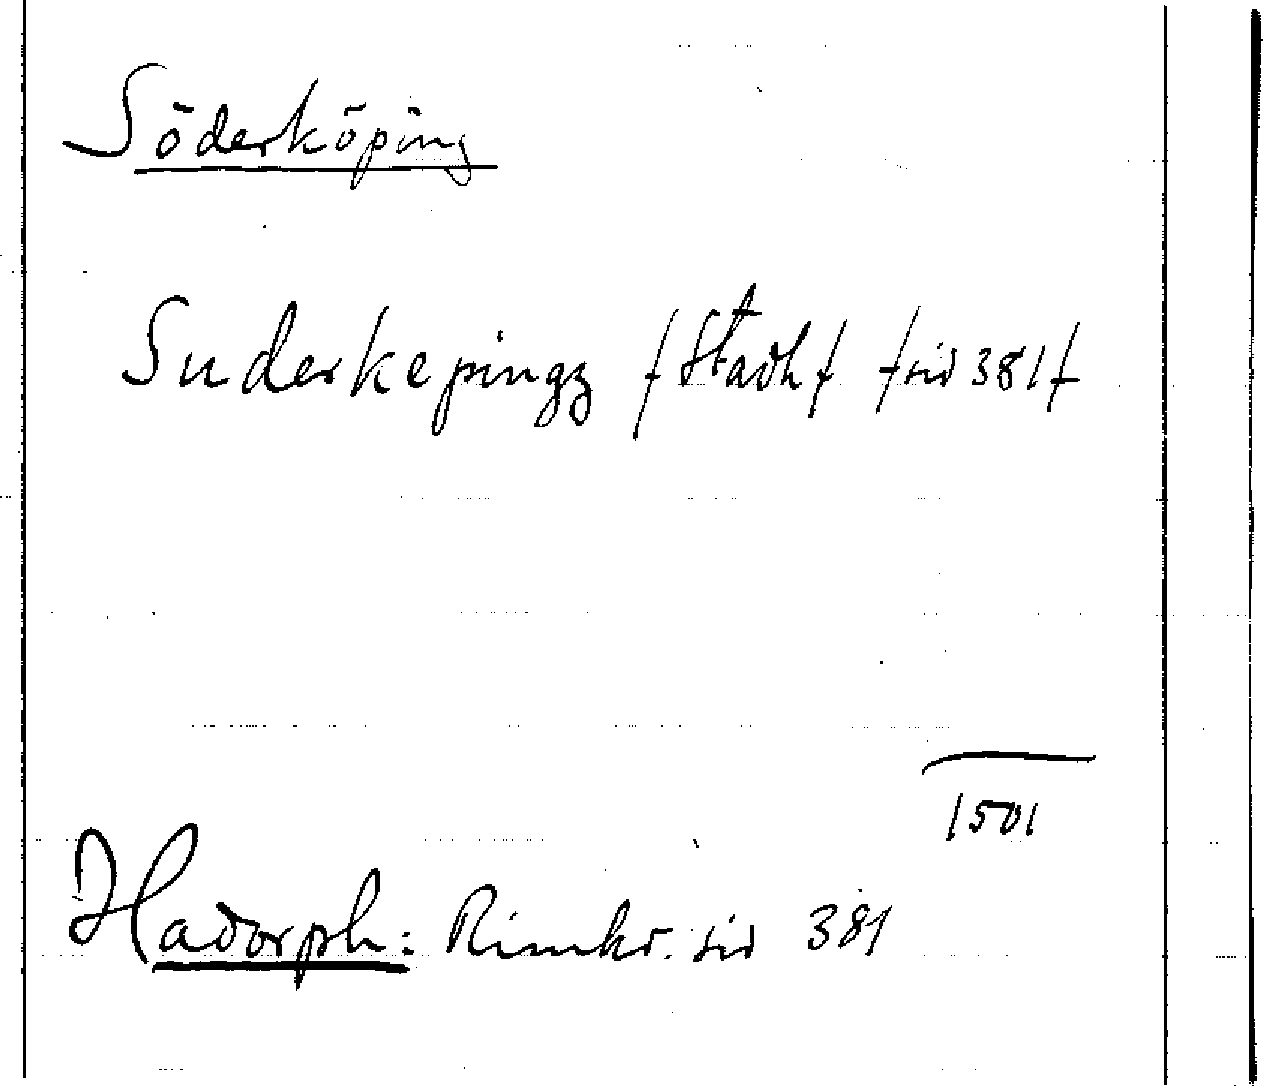 Söderköping
Suderkepingz /Stadh/ /sid 381/
1501
Hadorph: Rimkr. sid 381